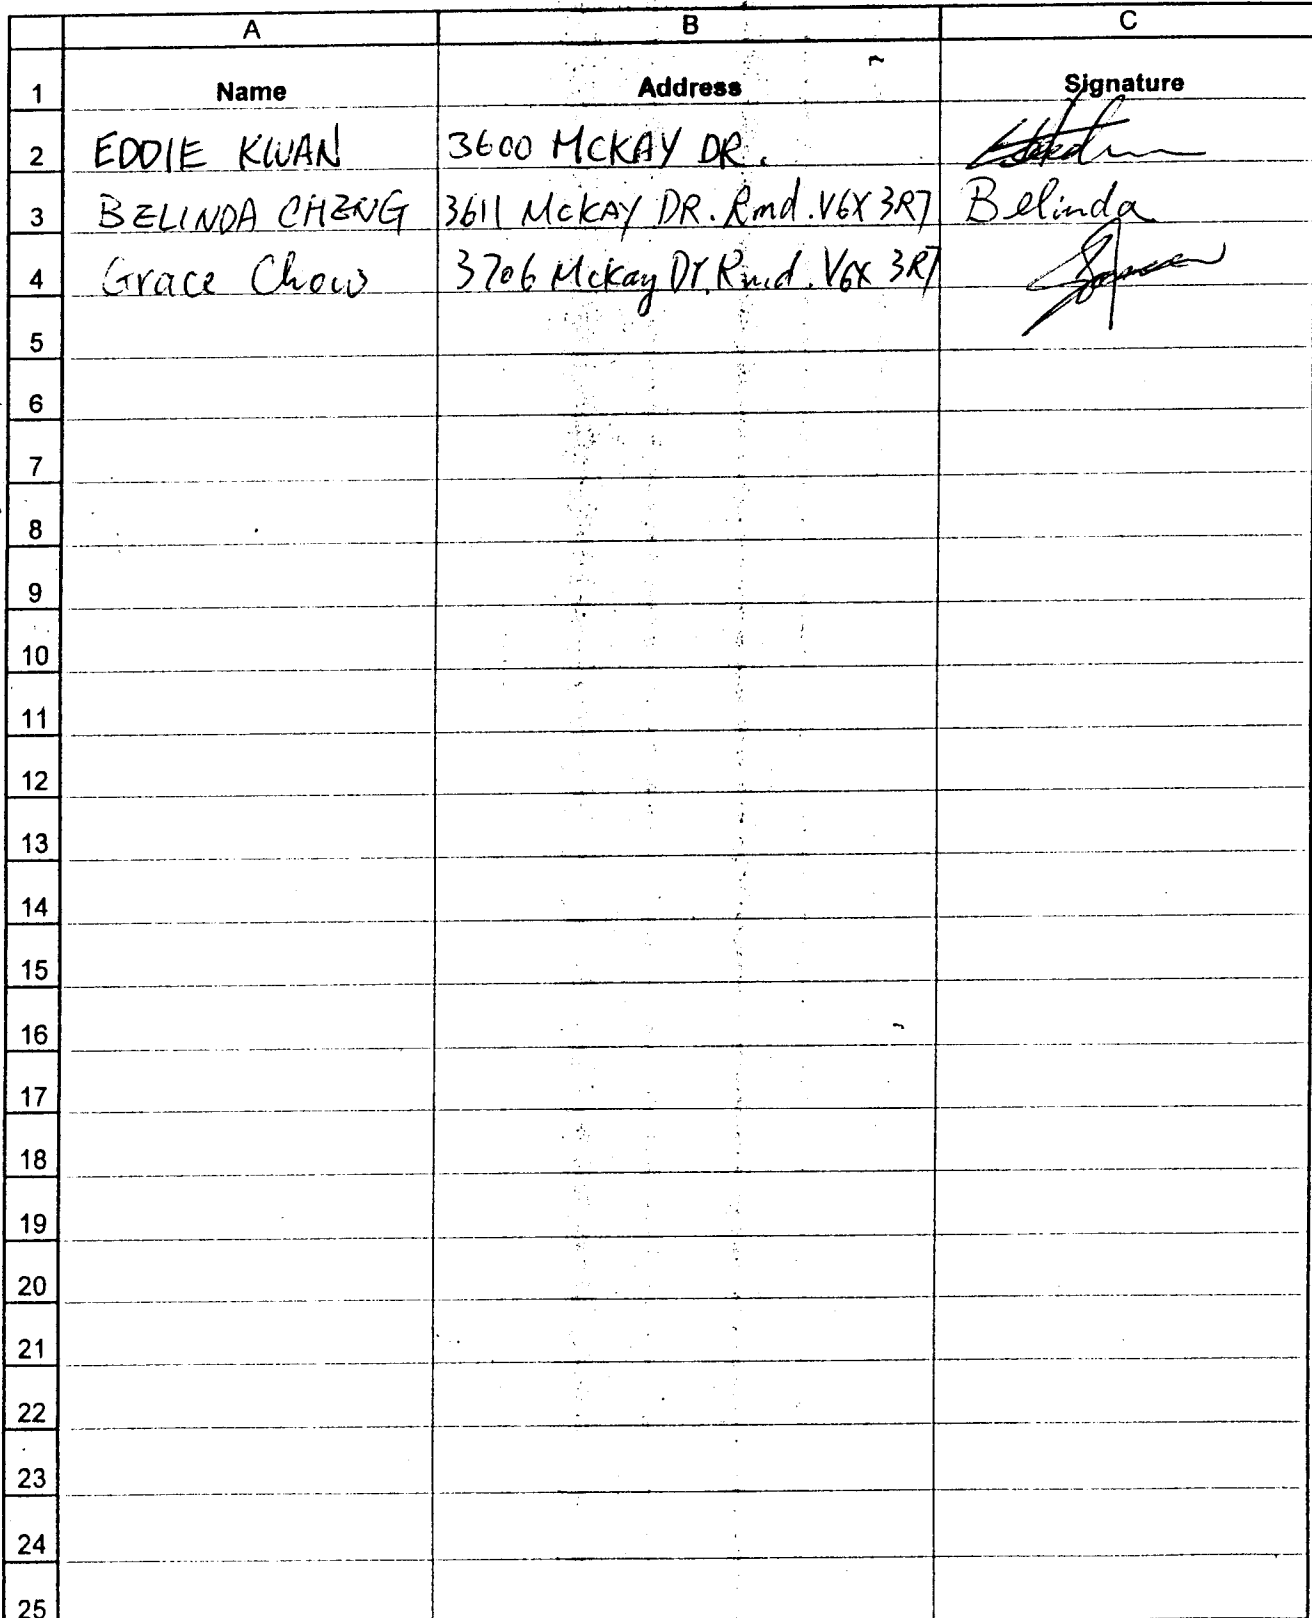 A B C
1 Name Address Signature
2 EDDIE KWAN 3600 MCKAY DR.
3 BELINDA CHENG 3611 McKAY DR. Rmd. V6X 3R7 Belinda
4 Grace Chow 3706 Mckay Dr. Rmd. V6X 3R7
5
6
7
8
9
10
11
12
13
14
15
16
17
18
19
20
21
22
23
24
25